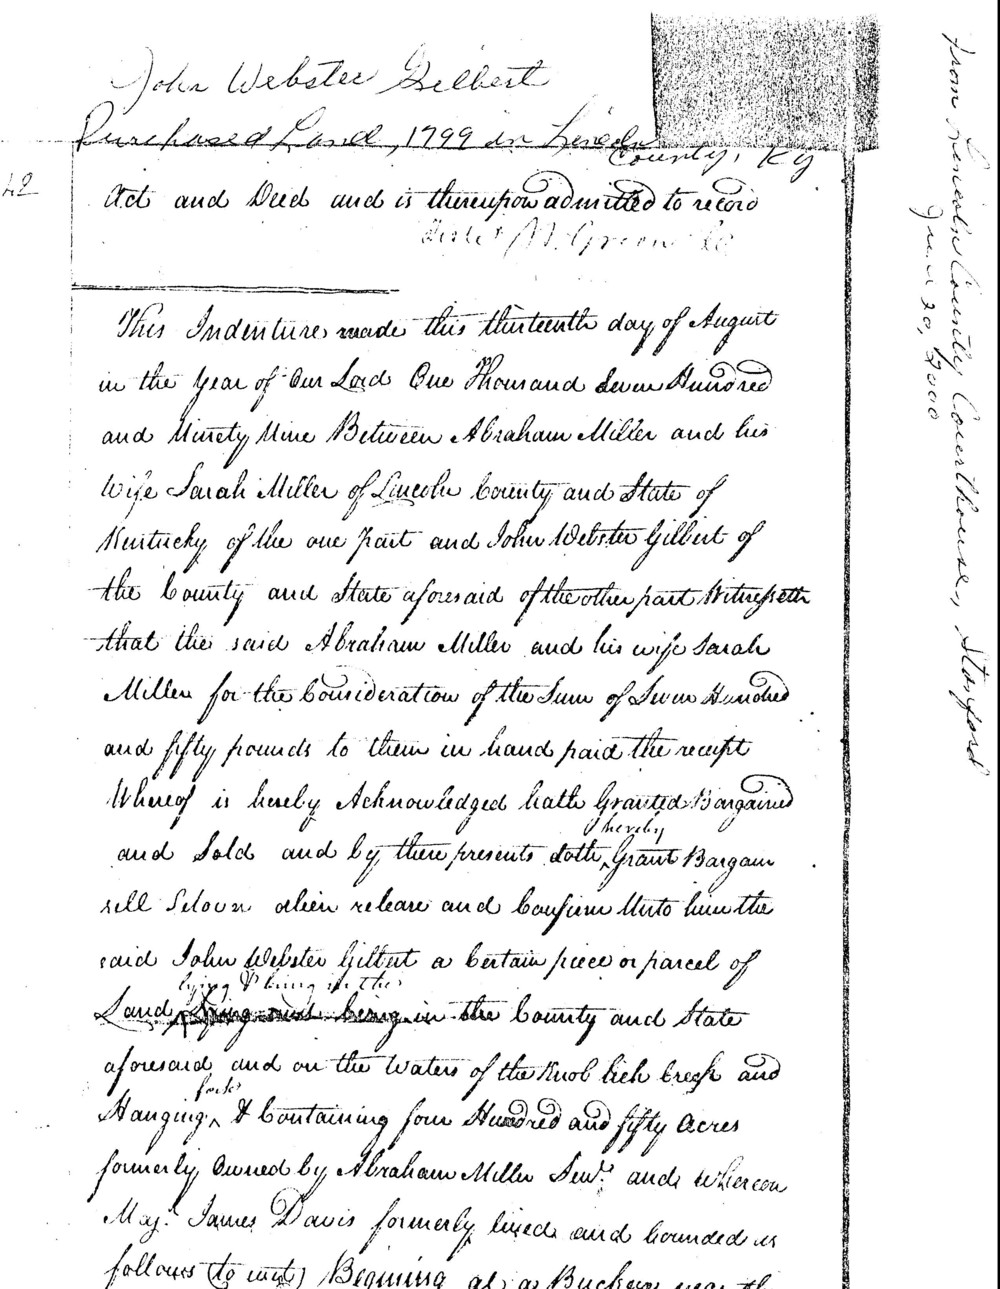 John Webster Gilbert
Purchased Land, 1799 in Lincoln
County, Ky
42
Act and Deed and is thereupon admitted to record
This Indenture made this thirteenth day of August
in the Year of Our Lord One Thousand Seven Hundred
and Ninety Nine Between Abraham Miller and his
Wife Sarah Miller of Lincoln County and State of
Kentucky of the one part and John Webster Gilbert of
the County and State aforesaid of the other part Witnesseth
that the said Abraham Miller and his wife Sarah
Miller for the Consideration of the Sum of Seven Hundred
and fifty pounds to them in hand paid the receipt
Whereof is hereby Acknowledged hath Granted Bargained
hereby
and Sold and by these presents doth Grant Bargain
sell alien release and Confirm Unto him the
said John Webster Gilbert a Certain piece or parcel of
lying & being in the
Land lying and being in the County and State
aforesaid and on the Waters of the Knob lick Creek and
fork
Hanging & Containing four Hundred and fifty Acres
formerly Owned by Abraham Miller Senr. and Whereon
Maj. James Davis formerly lived and bounded as
follows (to wit) Begining at a Buckeye near the
From Lincoln County Courthouse, Stanford
June 20, 2000